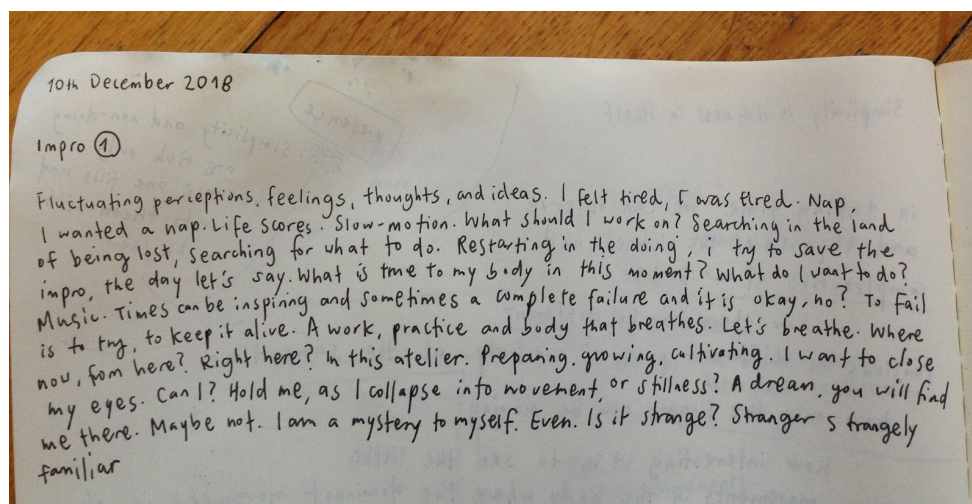 10th December 2018
Impro ①
Fluctuating perceptions, feelings, thoughts, and ideas. I felt tired, I was tired. Nap
I wanted a nap. Life scores. Slow-motion. What should I work on? Searching in the land
of being lost, searching for what to do. Restarting in the doing, i try to save the
impro, the day let's say. What is true to my body in this moment? What do I want to do?
Music. Times can be inspiring and sometimes a complete failure and it is okay, no? To fail
is to try, to keep it alive. A work, practice and body that breathes. Let's breathe. Where
now, fom here? Right here? In this atelier. Preparing, growing, cultivating. I want to close
my eyes. Can I? Hold me, as I collapse into movement, or stillness? A dream, you will find
me there. Maybe not. I am a mystery to myself. Even. Is it strange? Stranger strangely
familiar